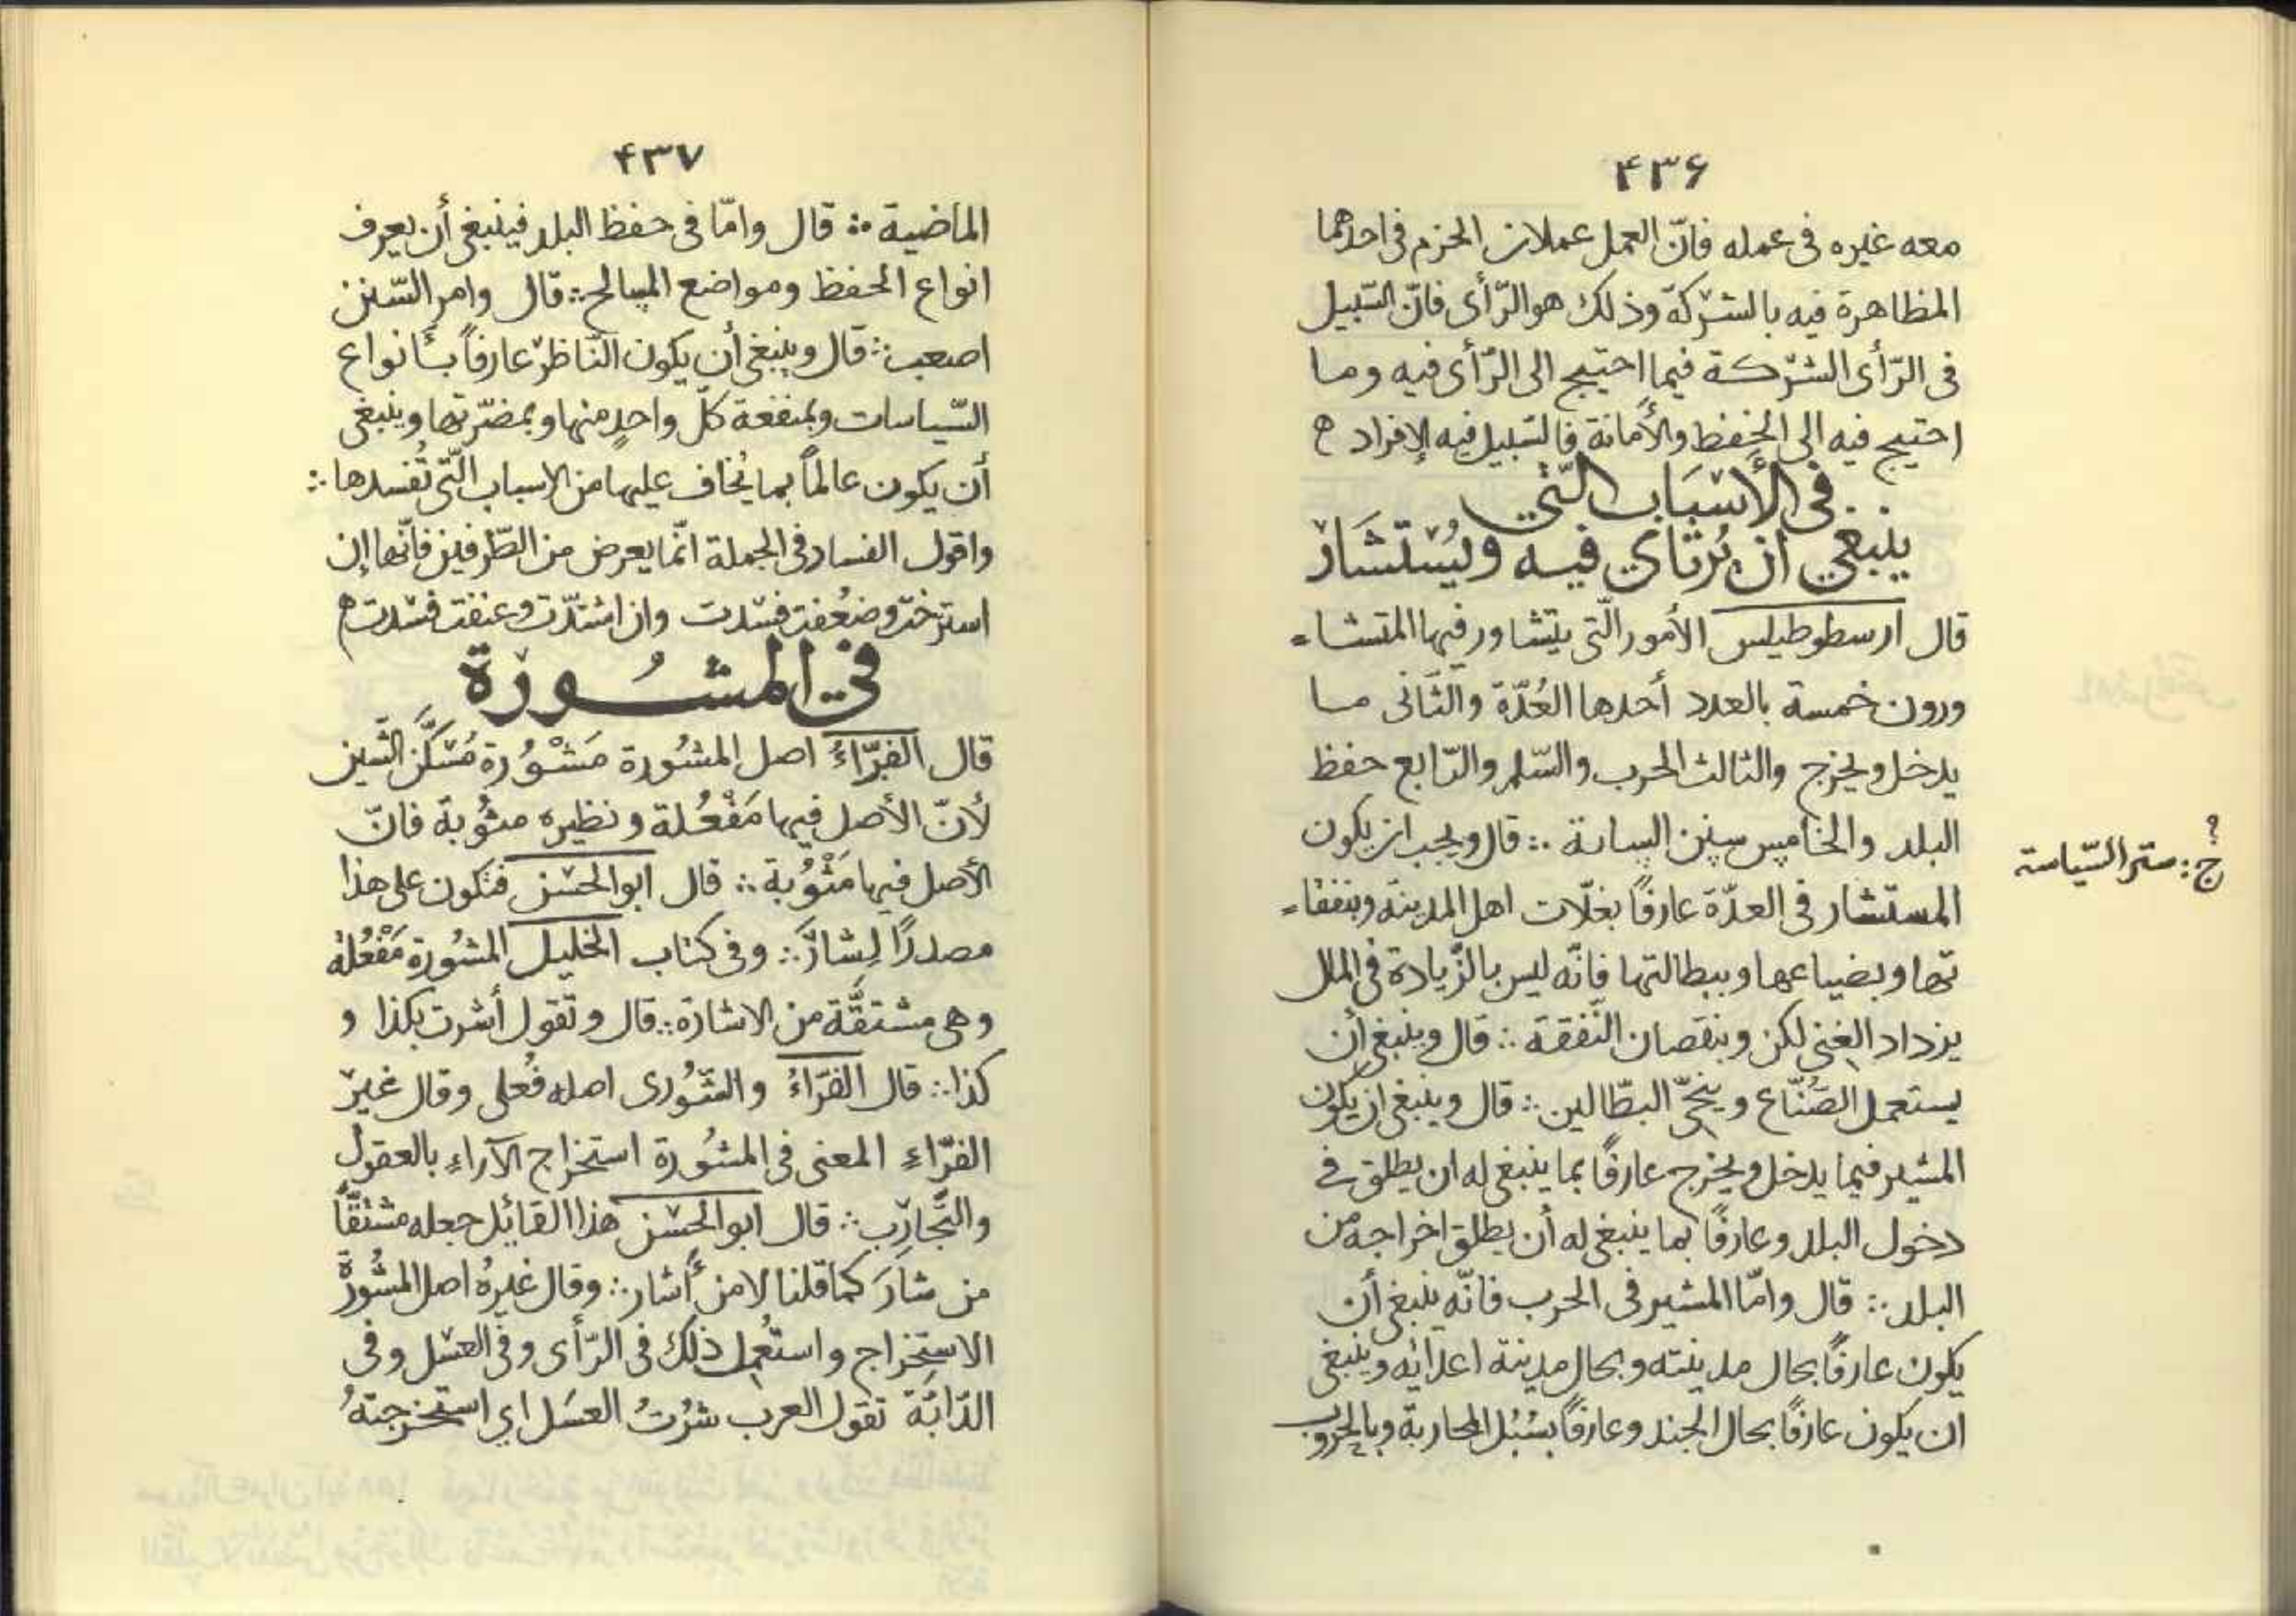 ۴۳۶
معه غيره فى عمله فانّ العمل عملان الحزم فى احدهما
المظاهرة فيه بالشركة وذلك هو الرّأى فانّ السّبيل
فى الرّأى الشّركة فيما احتيج الى الرّأى فيه وما
احتيج فيه الى الحِفظ والأمانة فالسّبيل فيه الإفراد ۵
فى الأسبَاب الّتى
ينبغى ان يُرتأى فيه ويُستَشَار
قال ارسطوطيلس الأمور الّتى يتشاور فيها المتشا=
ورون خمسة بالعدد أحدها العُدّة والثّانى ما
يدخل ويخرج والثالث الحرب والسّلم والرّابع حفظ
البلد والخامس سنن الساىة ∴ قال ويجب ان يكون
؟
ج: ستر السّياسة
المستشار فى العدّة عارفاً بغلّات اهل المدينة وبنفقا=
تها وبضياعها وببطالتها فانّه ليس بالزّيادة فى المال
يزداد الغنى لكن وبنقصان النّفقة ∴ قال وينبغى أن
يستعمل الصُنّاع وينحّى البطّالين ∴ قال وينبغى ان يكون
المشير فيما يدخل ويخرج عارفًا بما ينبغى له ان يطلق فى
دخول البلد وعارفًا بما ينبغى له أن يطلق اخراجه من
البلد ∴ قال وامّا المشير فى الحرب فانّه ينبغى أن
يكون عارفًا بحال مدينته وبحال مدينة اعدائه وينبغى
ان يكون عارفًا بحال الجند وعارفًا بسُبُل المحاربة وبالحروب
۴۳۷
الماضية ∴ قال وامّا فى حفظ البلد فينبغى أن يعرف
انواع الحفظ ومواضع المسالح ∴ قال وامر السّنن
اصعب ∴ قال وينبغى أن يكون النّاظر عارفاً بأنواع
السّياسات وبمنفعة كلّ واحدٍ منها وبمضرّتها وينبغى
أن يكون عالماً بما يُخاف عليها من الاسباب الّتى تُفسدها ∴
واقول الفساد فى الجملة انّما يعرض من الطّرفين فانّها إن
استرخت وضعُفت فسدت وان اشتدّت وعنفت فسدت ۵
فى المشُورة
قال الفرّاءُ اصل المشُورة مَشْوُرة مُسَكَّن الشّين
لأنّ الأصل فيها مَفْعُلة ونظيره مثُوبة فانّ
الأصل فيها مَثْوُبة ∴ قال ابو الحسن فتكون على هذا
مصدرًا لِشارَ ∴ وفى كتاب الخليل المشُورة مَفْعُلة
وهى مشتقّة من الاشارة ∴ قال وتقول أشرت بكذا و
كذا ∴ قال الفرّاءُ والشّورى اصله فُعلى وقال غير
الفرّاءِ المعنى فى المشُورة استخراج الآراء بالعقول
والتّجارب ∴ قال ابو الحسن هذا القائل جعله مشتقًّا
من شارَ كما قلنا لا من أشار ∴ وقال غيرُه اصل المشُورة
الاستِخراج واستُعمِل ذلك فى الرّأى وفى العسل وفى
الدّابّة تقول العرب شُرْتُ العسَل اي استخرجتهُ